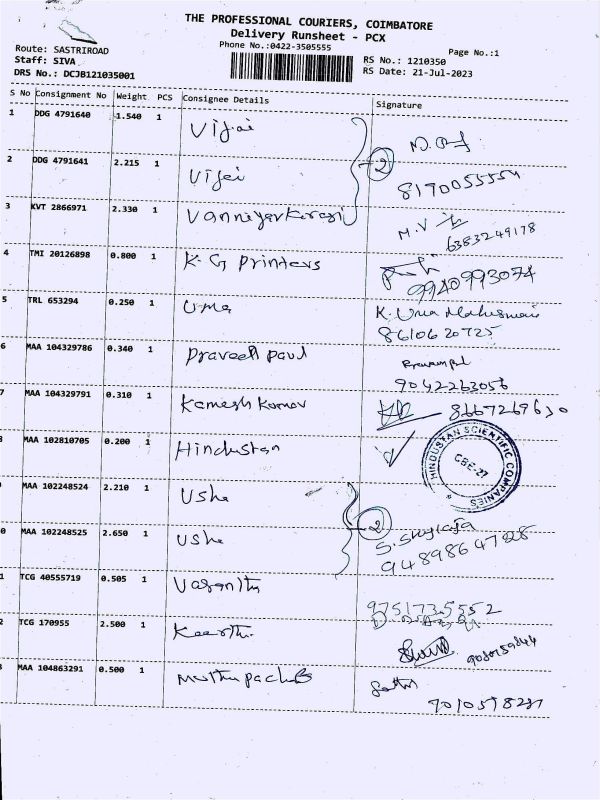 THE PROFESSIONAL COURIERS, COIMBATORE
Delivery Runsheet - PCX
Phone No.:0422-3505555
Page No.:1
Route: SASTRIROAD
Staff: SIVA
DRS No.: DCJB121035001
RS No.: 1210350
RS Date: 21-Jul-2023
S No Consignment No Weight PCS Consignee Details Signature
1 DDG 4791640 1.540 1 Vijai
2 DDG 4791641 2.215 1 Vijai 2 8170055554
3 KVT 2866971 2.330 1 Vanniyarkarasi M.V 6383249178
4 TMI 20126898 0.800 1 K.G Printers 9940993074
5 TRL 653294 0.250 1 Uma K. Uma Maheswari 8610620725
6 MAA 104329786 0.340 1 Praveen paul 9042263056
7 MAA 104329791 0.310 1 Kamesh Kumar 8667269630
MAA 102810705 0.200 1 Hindustan HINDUSTAN SCIENTIFIC COMPANIES CBE-27
MAA 102248524 2.210 1 Usha
0 MAA 102248525 2.650 1 Usha 2
1 TCG 40555719 0.505 1 Vasantha 9751735552
2 TCG 170955 2.500 1 Keerthi
MAA 104863291 0.500 1